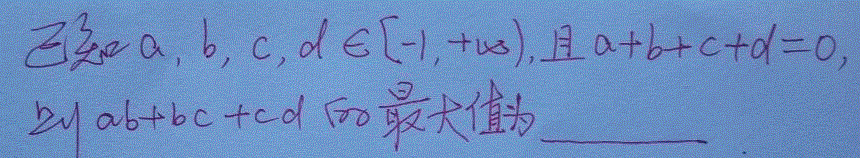 已知a,b,c,d∈[-1,+∞),且a+b+c+d=0,
则ab+bc+cd的最大值为______.